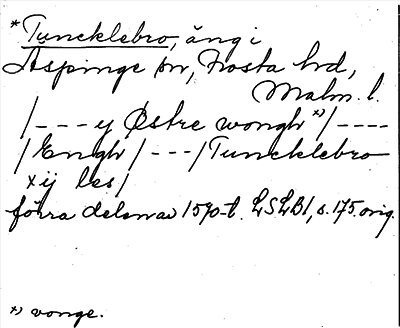 *Tuncklebro, äng i
Aspinge sn, Frosta hd,
Malm. l.
/--- y Østre wongh *)/----
/Engh/---/Tuncklebro
xij les/
förra delen av 1570-t. LSLB1, s. 175. orig.
*) vonge.